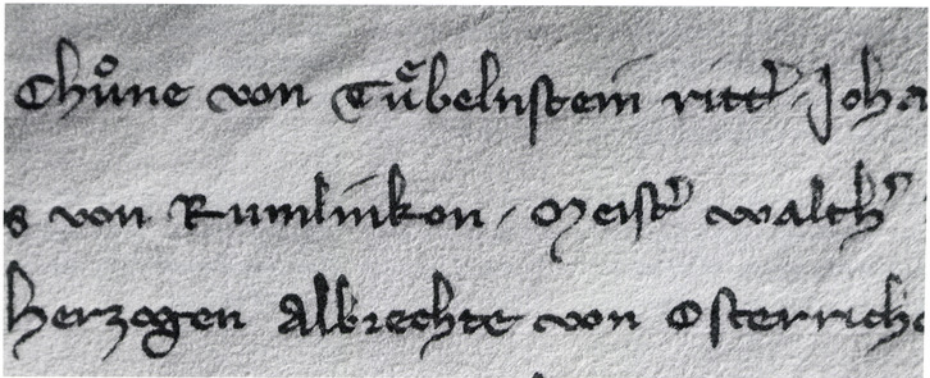 Chůne von Túbelnstein ritt̕ · Joha
s von Rumlinkon / Meist̕ walth̕
herzogen Albrechte von Osterriche